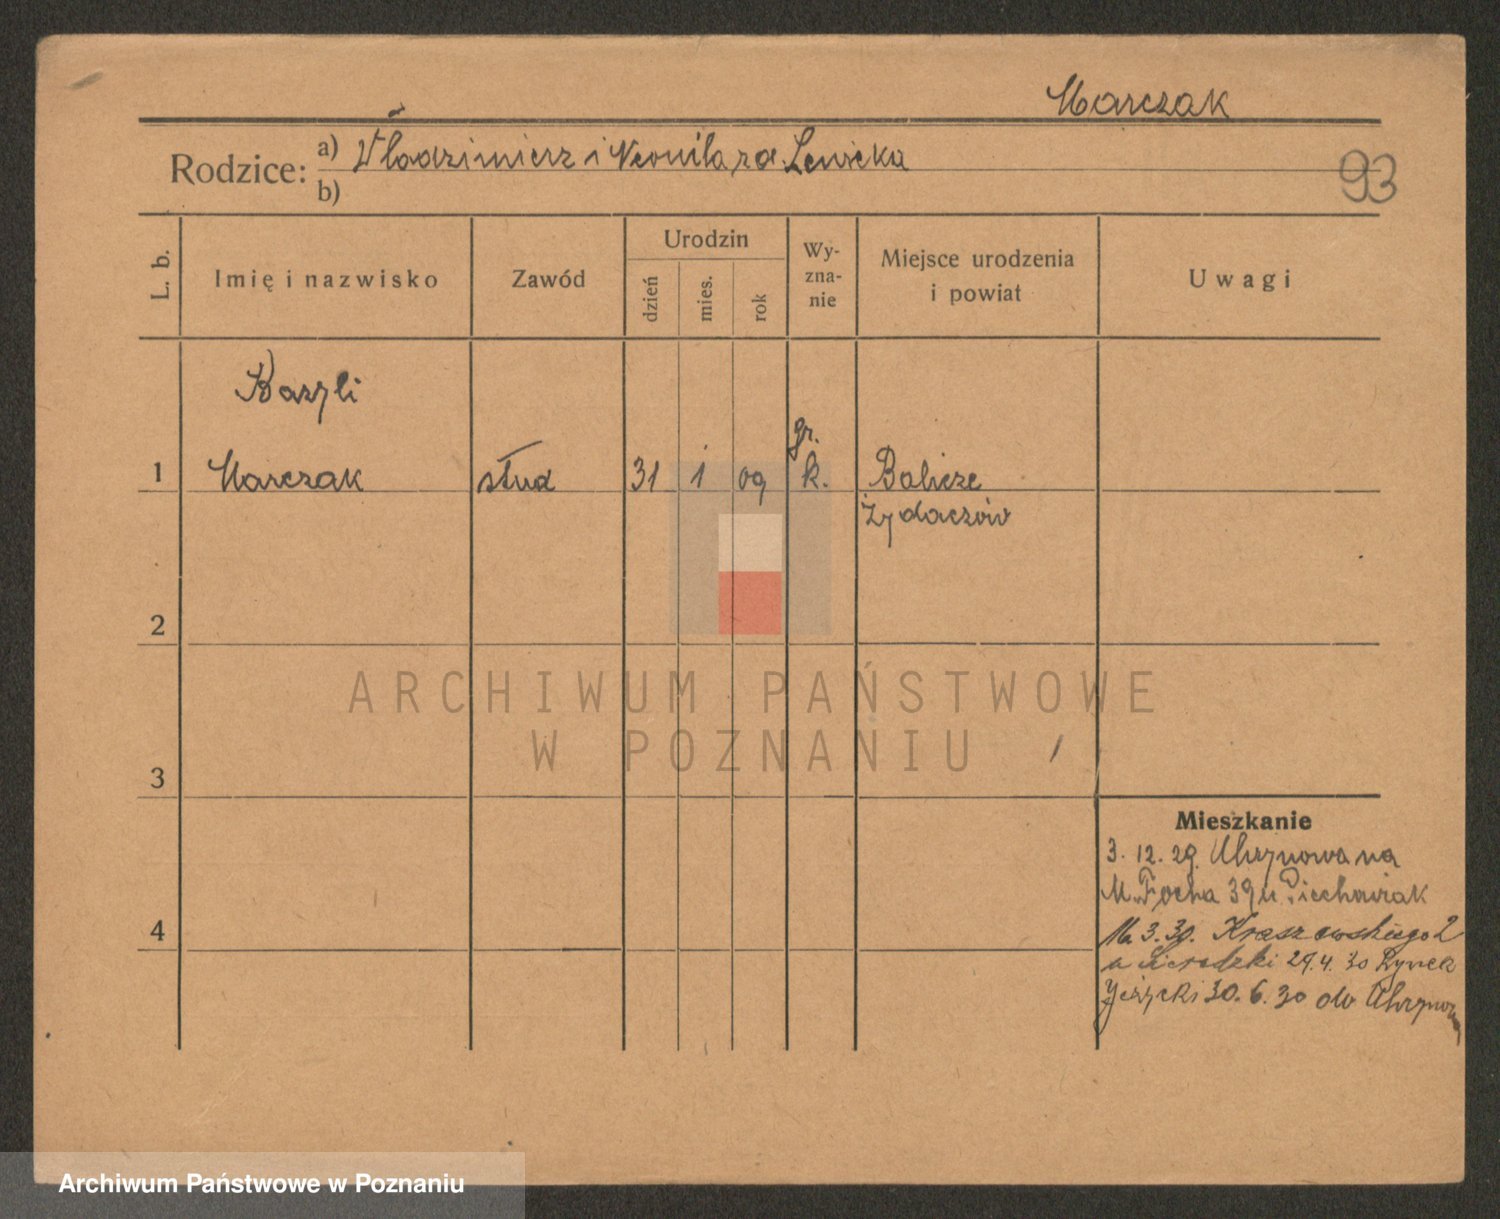 Marczak
Rodzice: a) Włodzimierz i Neonila zd. Lewicka
b)
93
L. b.
Imię i nazwisko
Zawód
Urodzin
dzień
mies.
rok
Wy-
zna-
nie
Miejsce urodzenia
i powiat
Uwagi
Bazyli
gr.
1 Marczak stud 31 1 09 k. Balicze
Żydaczów
2
ARCHIWUM PAŃSTWOWE
W POZNANIU
3
Mieszkanie
3. 12. 29. Uhrynowa na
M. Focha 39 u Piechowiak
3. 30. Kraszewskiego 2
u Sieradzki 29.4. 30 Rynek
Jeżycki 30. 6. 30 do Uhrynowa
4
Archiwum Państwowe w Poznaniu